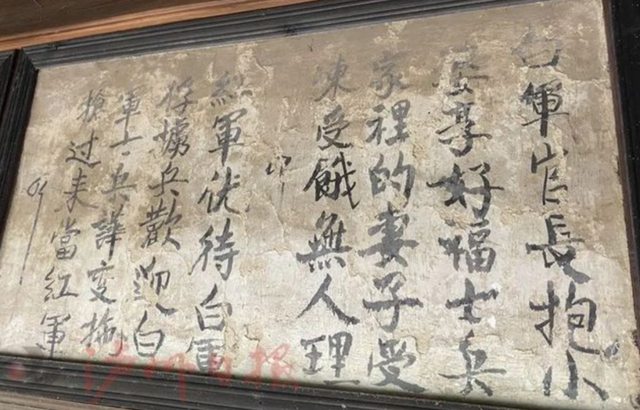 白軍官長抱小
妾享好福士兵
家裡的妻子受
凍受餓無人理
紅軍优待白軍
俘擄兵歡迎白
軍士兵譁变拖
槍过来當红軍